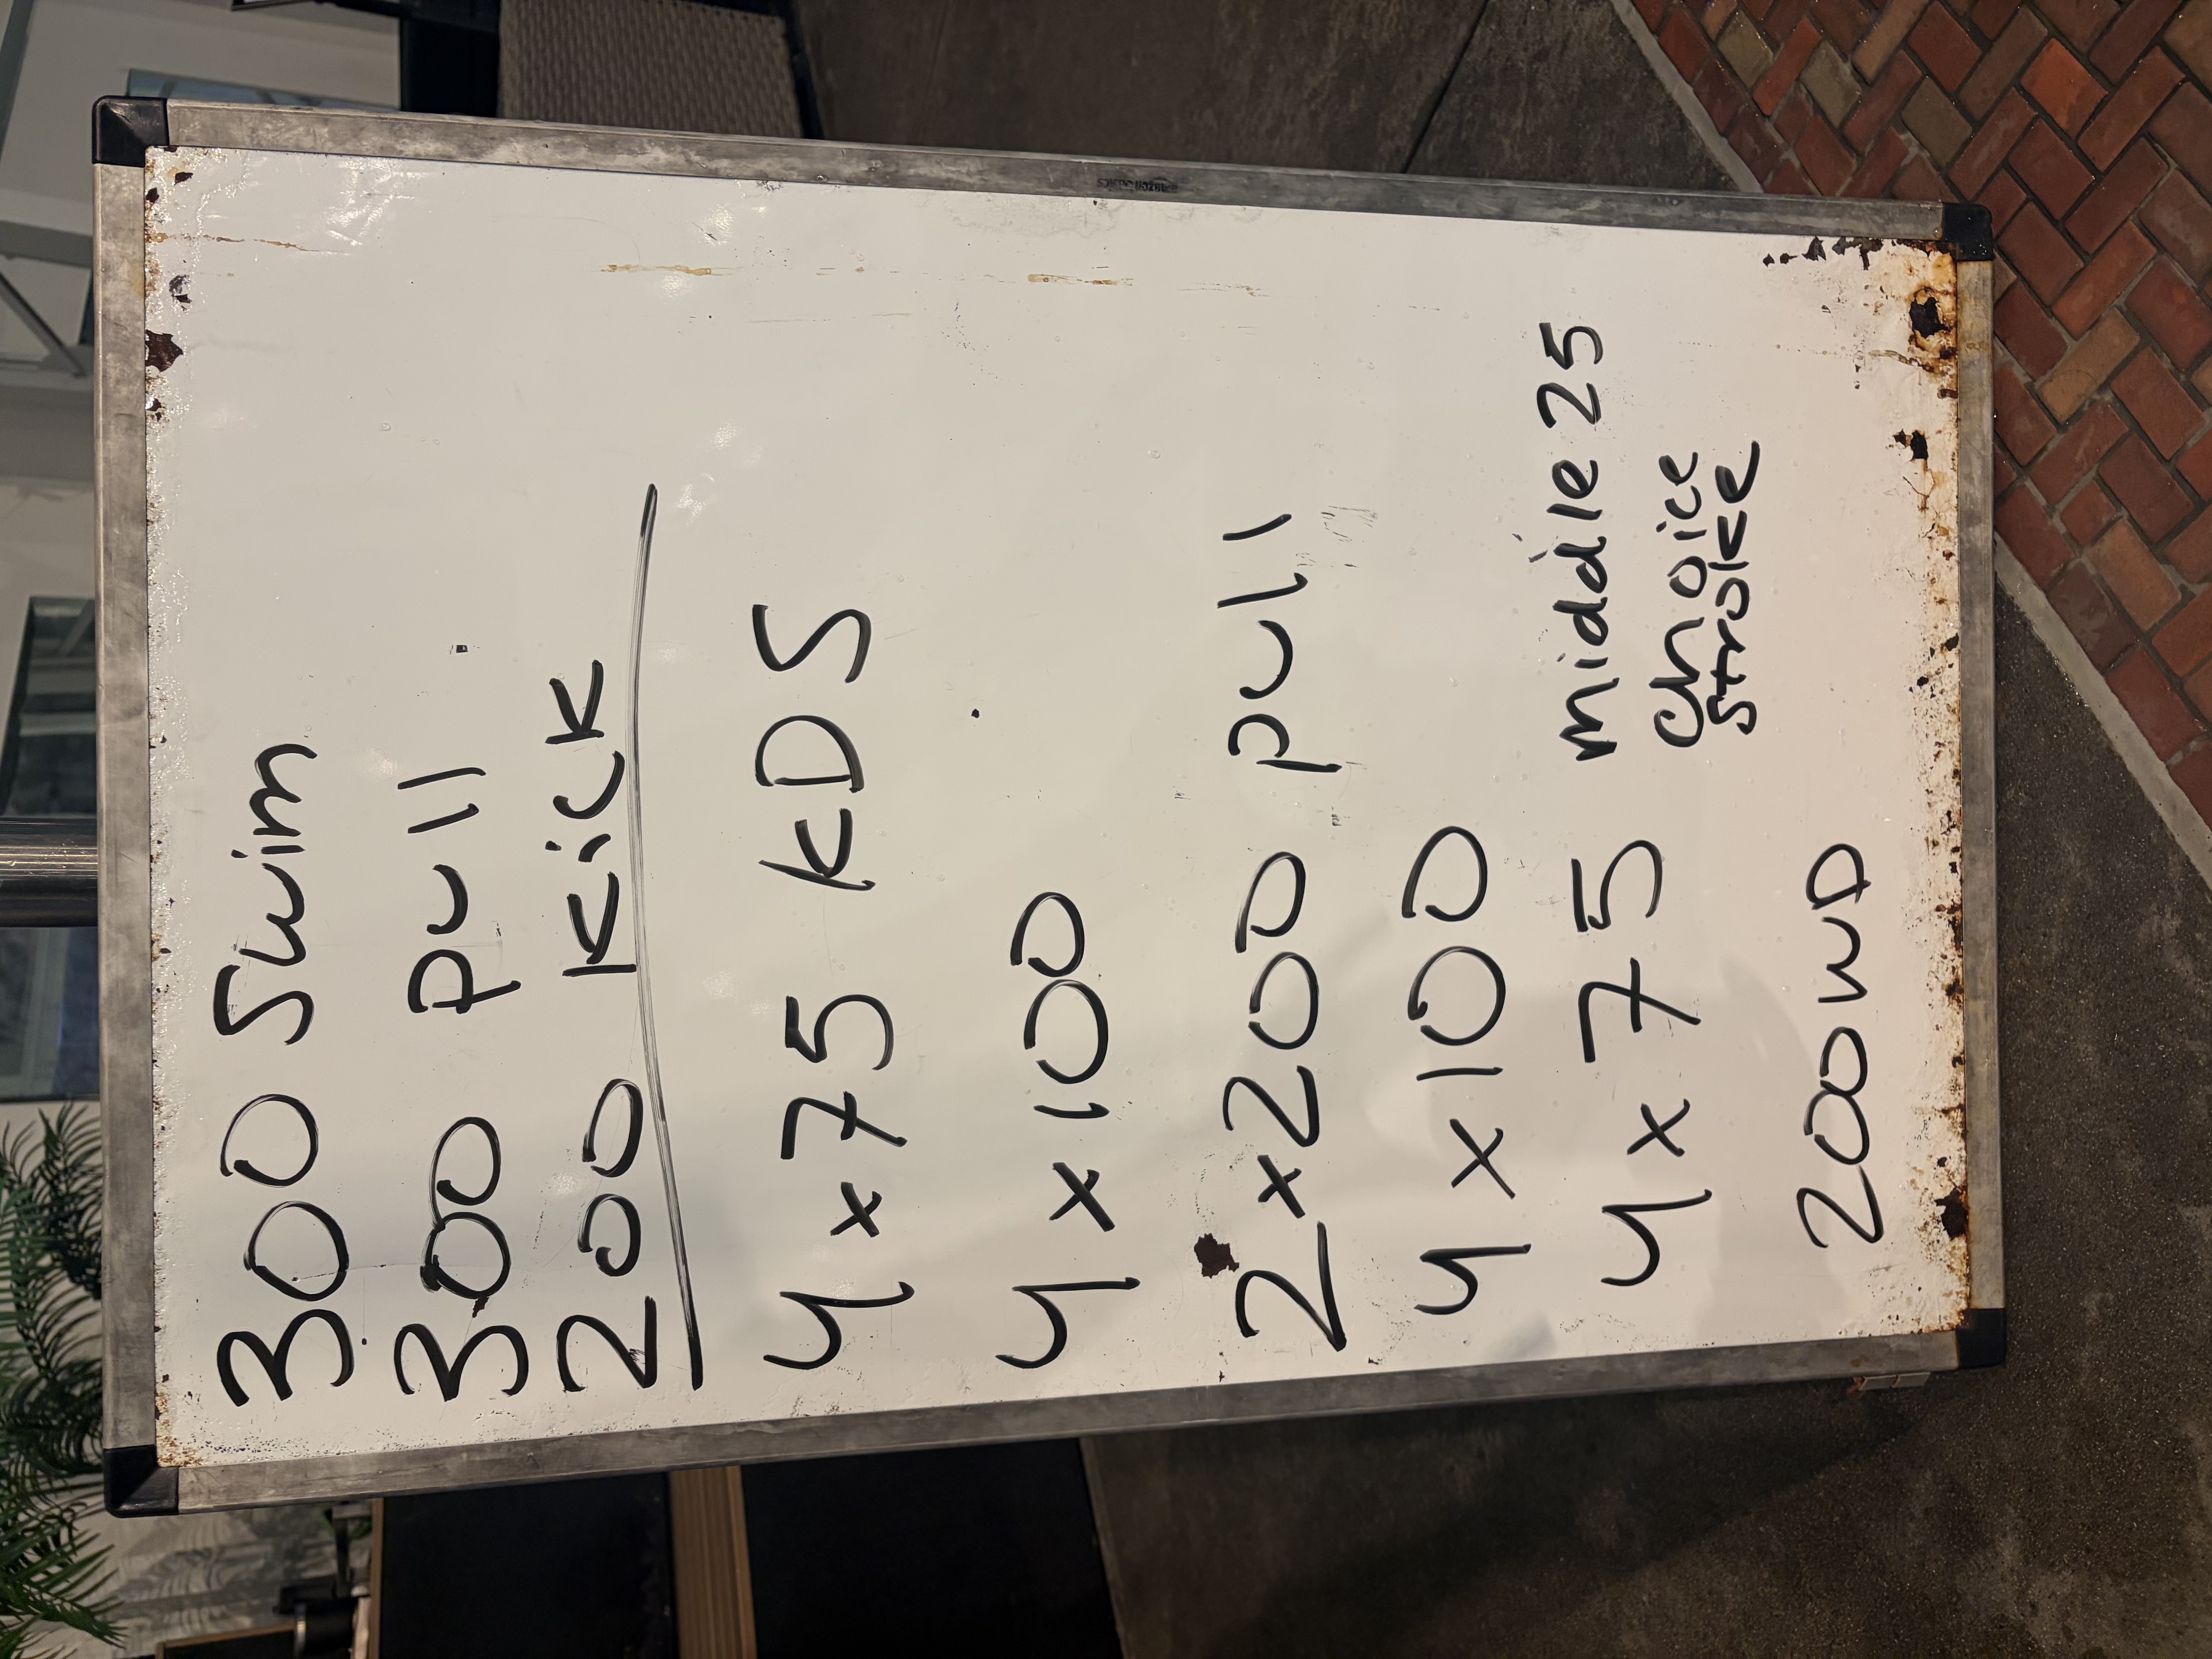 300 Swim
300 pull
200 Kick
4 x 75 KDS
4 x 100
2 x 200 pull
4 x 100
4 x 75 middle 25
Choice
Stroke
200 WD